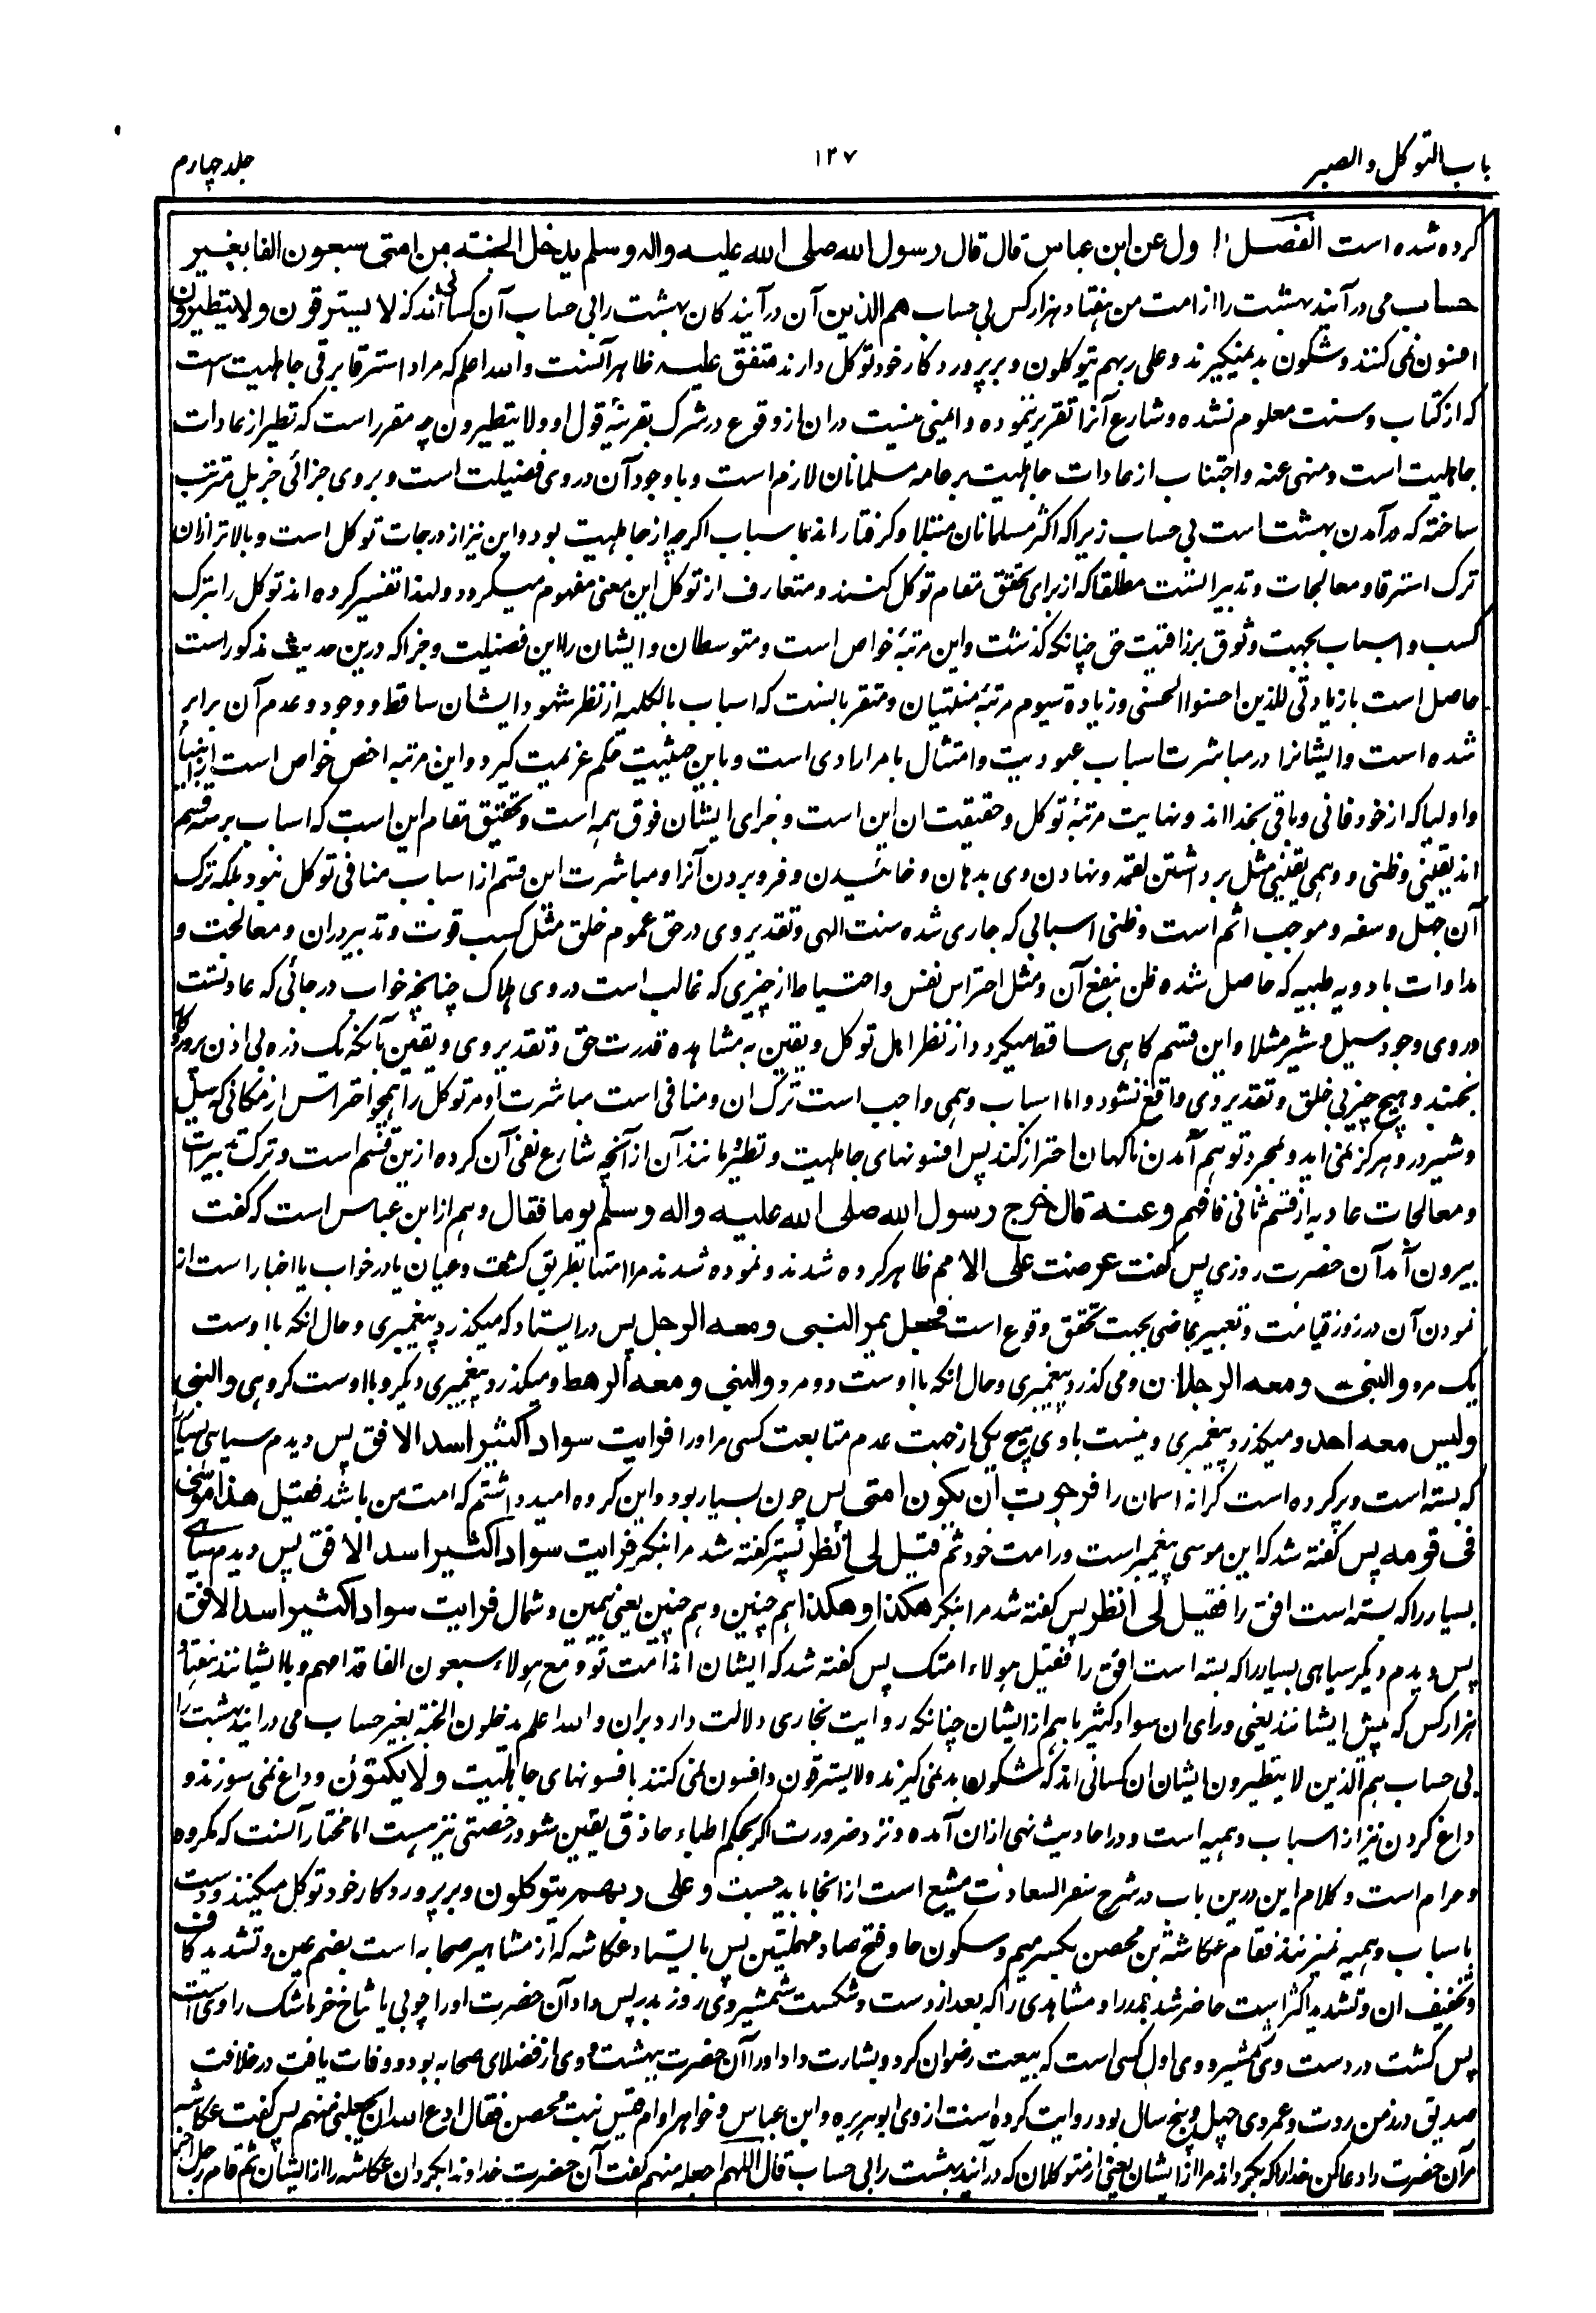 باب التوکل والصبر
۱۲۷
جلد چهارم
کرده شده است الفصل الاول عن ابن عباس قال قال رسول الله صلی الله علیه واله وسلم یدخل الجنته من امتی سبعون الفا بغیر
حساب می در آیند بهشت را از امت من هفتاد هزار کس بی حساب هم الذین آن در آیندگان بهشت را بی حساب آن کسانی اند که لا یسترقون ولا یتطیرون
افسون نمی کنند و شگون بد نمیگیرند وعلی ربهم یتوکلون و بر پروردگار خود توکل دارند متفق علیه ظاهر آنست والله اعلم که مراد استرقا برقی جاهلیت است
که از کتاب و سنت معلوم نشده و شارع آنرا تقریر ننموده و ایمنی نیست دران از وقوع در شرک بقرینهٔ قول او ولا یتطیرون چه مقرر است که تطیر از عادات
جاهلیت است و منهی عنه و اجتناب از عادات جاهلیت بر عامه مسلمانان لازم است و باوجود آن در وی فضیلت است و بروی جزائی جزیل مترتب
ساخته که درآمدن بهشت است بی حساب زیرا که اکثر مسلمانان مبتلا و گرفتار اند باسباب اگرچه از جاهلیت بود و این نیز از درجات توکل است و بالاتر ازان
ترک استرقا و معالجات و تدبیر است مطلقا که از برای تحقق مقام توکل کنند و متعارف از توکل این معنی مفهوم میگردد ولهذا تفسیر کرده اند توکل را بترک
کسب و اسباب بجهت وثوق برزاقیت حق چنانکه گذشت و این مرتبهٔ خواص است و متوسطان و ایشان را این فضیلت و جزا که درین حدیث مذکور است
حاصل است با زیادتی للذین احسنوا الحسنی وزیادة سیوم مرتبهٔ منتهیان و متقربانست که اسباب بالکلیه از نظر شهود ایشان ساقط و وجود و عدم آن برابر
شده است و ایشانرا در مباشرت اسباب عبودیت و امتثال بامر ارادی است و باین حیثیت حکم عزیمت گیرد و این مرتبه اخص خواص است از انبیا
و اولیا که از خود فانی و باقی بخدا اند و نهایت مرتبهٔ توکل و حقیقت ان این است و جزای ایشان فوق همه است و تحقیق مقام این است که اسباب بر سه قسم
اند یقینی و ظنی و وهمی یقینی مثل برداشتن لقمه و نهادن وی بدهان و خائیدن و فرو بردن آنرا و مباشرت این قسم از اسباب منافی توکل نبود بلکه ترک
آن جهل و سفه و موجب اثم است و ظنی اسبابی که جاری شده سنت الهی و تقدیر وی در حق عموم خلق مثل کسب قوت و تدبیر دران و معالجت و
مداوات بادویه طبیه که حاصل شده ظن بنفع آن و مثل احتراس نفس و احتیاط از چیزی که غالب است در وی هلاک چنانچه خواب در جائی که عادتست
در وی وجود سیل و شیر مثلا و این قسم گاهی ساقط میگردد از نظر اهل توکل و یقین به مشاهده قدرت حق و تقدیر وی و یقین بآنکه یک ذره بی اذن پروردگار
نجنبد و هیچ چیز بی خلق و تقدیر وی واقع نشود و اما اسباب وهمی واجب است ترک ان و منافی است مباشرت او مر توکل را همچو احتراس از مکانی که سیل
و شیر درو هرگز نمی اید و بمجرد توهم آمدن ناگهان احتراز کند پس افسونهای جاهلیت و تطیر مانند آن از آنچه شارع نفی آن کرده ازین قسم است و ترک تدبیرات
و معالجات عادیه از قسم ثانی فافهم وعنه قال خرج رسول الله صلی الله علیه واله وسلم یوما فقال و هم از ابن عباس است که گفت
بیرون آمد آن حضرت روزی پس گفت عرضت علی الامم ظاهر کرده شدند و نموده شدند مرا امتها بطریق کشف و عیان یا در خواب یا اخبار است از
نمودن آن در روز قیامت و تعبیر بماضی بجهت تحقق وقوع است فجعل یمر النبی ومعه الرجل پس در ایستاد که میگذرد پیغمبری و حال انکه با اوست
یک مرد والنبی ومعه الرجلان و می گذرد پیغمبری و حال انکه با اوست دو مرد والنبی ومعه الرهط و میگذرد پیغمبری دیگر و با اوست گروهی والنبی
ولیس معه احد و میگذرد پیغمبری و نیست با وی هیچ یکی از جهت عدم متابعت کسی مر اورا فرایت سوادا کثیرا سد الافق پس دیدم سیاهی بسیار
که بسته است و پر کرده است کرانه اسمان را فرجوت ان یکون امتی پس چون بسیار بود و این گروه امید داشتم که امت من باشد فقیل هذا موسی
فی قومه پس گفته شد که این موسی پیغمبر است در امت خود ثم قیل لی انظر پستر گفته شد مرا بنگر فرایت سوادا کثیرا سد الافق پس دیدم سیاهی
بسیار را که بسته است افق را فقیل لی انظر پس گفته شد مرا بنگر هکذا وهکذا هم چنین و هم چنین یعنی یمین و شمال فرایت سوادا کثیرا سد الافق
پس دیدم دیگر سیاهی بسیار را که بسته است افق را فقیل هولاء امتک پس گفته شد که ایشان اند امت تو ومع هولاء سبعون الفا قدامهم و با ایشانند هفتاد
هزار کس که پیش ایشانند یعنی ورای ان سواد کثیر یا هم از ایشان چنانکه روایت بخاری دلالت دارد بران والله اعلم یدخلون الجنة بغیر حساب می در ایند بهشت را
بی حساب هم الذین لا یتطیرون ایشان ان کسانی اند که شگون بد نمی گیرند ولا یسترقون و افسون نمی کنند بافسونهای جاهلیت ولا یکتوون و داغ نمی سوزند و
داغ کردن نیز از اسباب وهمیه است و در احادیث نهی ازان آمده و نزد ضرورت اگر بحکم اطباء حاذق یقین شود رخصتی نیز هست اما مختار آنست که مکروه
و حرام است و کلام این درین باب در شرح سفر السعادت مشبع است از انجا باید جست وعلی ربهم یتوکلون و بر پروردگار خود توکل میکنند و دست
باسباب وهمیه نمیزنند فقام عکاشة بن محصن بکسر میم و سکون حا و فتح صاد مهملتین پس بایستاد عکاشه که از مشاهیر صحابه است بضم عین و تشدید کاف
و تخفیف ان و تشدید اکثر است حاضر شد بدر را و مشاهدی را که بعد از دست و شکست شمشیر وی روز بدر پس داد آن حضرت اورا چوبی یا شاخ خرما شک راوی است
پس گشت در دست وی شمشیر و وی اول کسی است که بیعت رضوان کرد و بشارت داد اورا آن حضرت ببهشت و وی از فضلای صحابه بود و وفات یافت در خلافت
صدیق در زمن ردت و عمر وی چهل و پنج سال بود روایت کرده است از وی ابوهریره و ابن عباس و خواهر او ام قیس بنت محصن فقال ادع الله ان یجعلنی منهم پس گفت عکاشه
مر آن حضرت را دعا کن خدا را که بگرداند مرا از ایشان یعنی از متوکلان که در آیند بهشت را بی حساب قال اللهم اجعله منهم گفت آن حضرت خداوندا بگردان عکاشه را از ایشان ثم قام رجل اخر